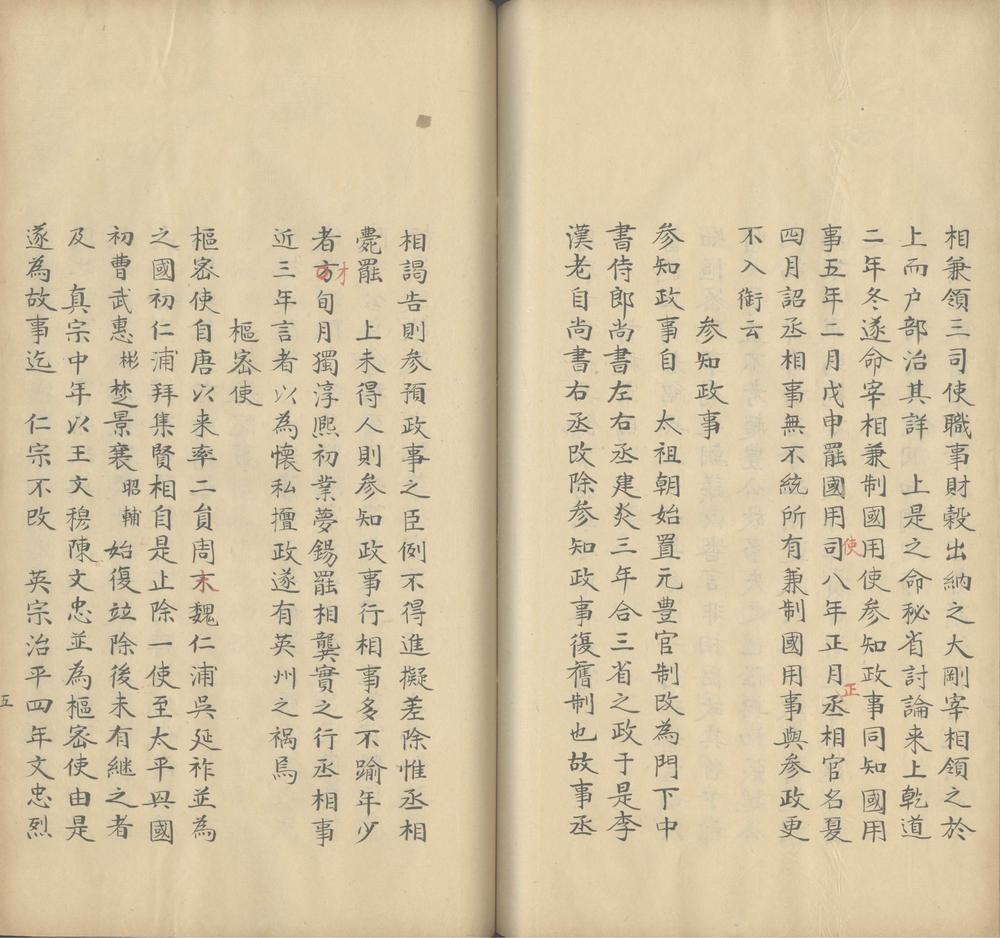 相兼領三司使職事財穀出納之大剛宰相領之於
上而户部治其詳　上是之命秘省討論来上乾道
二年冬遂命宰相兼制國用使参知政事同知國用
事五年二月戊申罷國用司使八年正月丞相官名夏
四月詔丞相事無不統所有兼制國用事與参政更
不入銜云
参知政事
参知政事自　太祖朝始置元豊官制改為門下中
書侍郎尚書左右丞建炎三年合三省之政于是李
漢老自尚書右丞改除参知政事復舊制也故事丞
相謁告則参預政事之臣例不得進擬差除惟丞相
薨罷　上未得人則参知政事行相事多不踰年少
者方才旬月獨淳熙初葉夢錫罷相龔實之行丞相事
近三年言者以為懐私擅政遂有英州之禍焉
樞密使
樞密使自唐以来率二員周末魏仁浦吳延祚並為
之國初仁浦拜集賢相自是止除一使至太平興國
初曹武惠彬楚景襄昭輔始復竝除後未有継之者
及　真宗中年以王文穆陳文忠並為樞密使由是
遂為故事迄　仁宗不改　英宗治平四年文忠烈
五
正